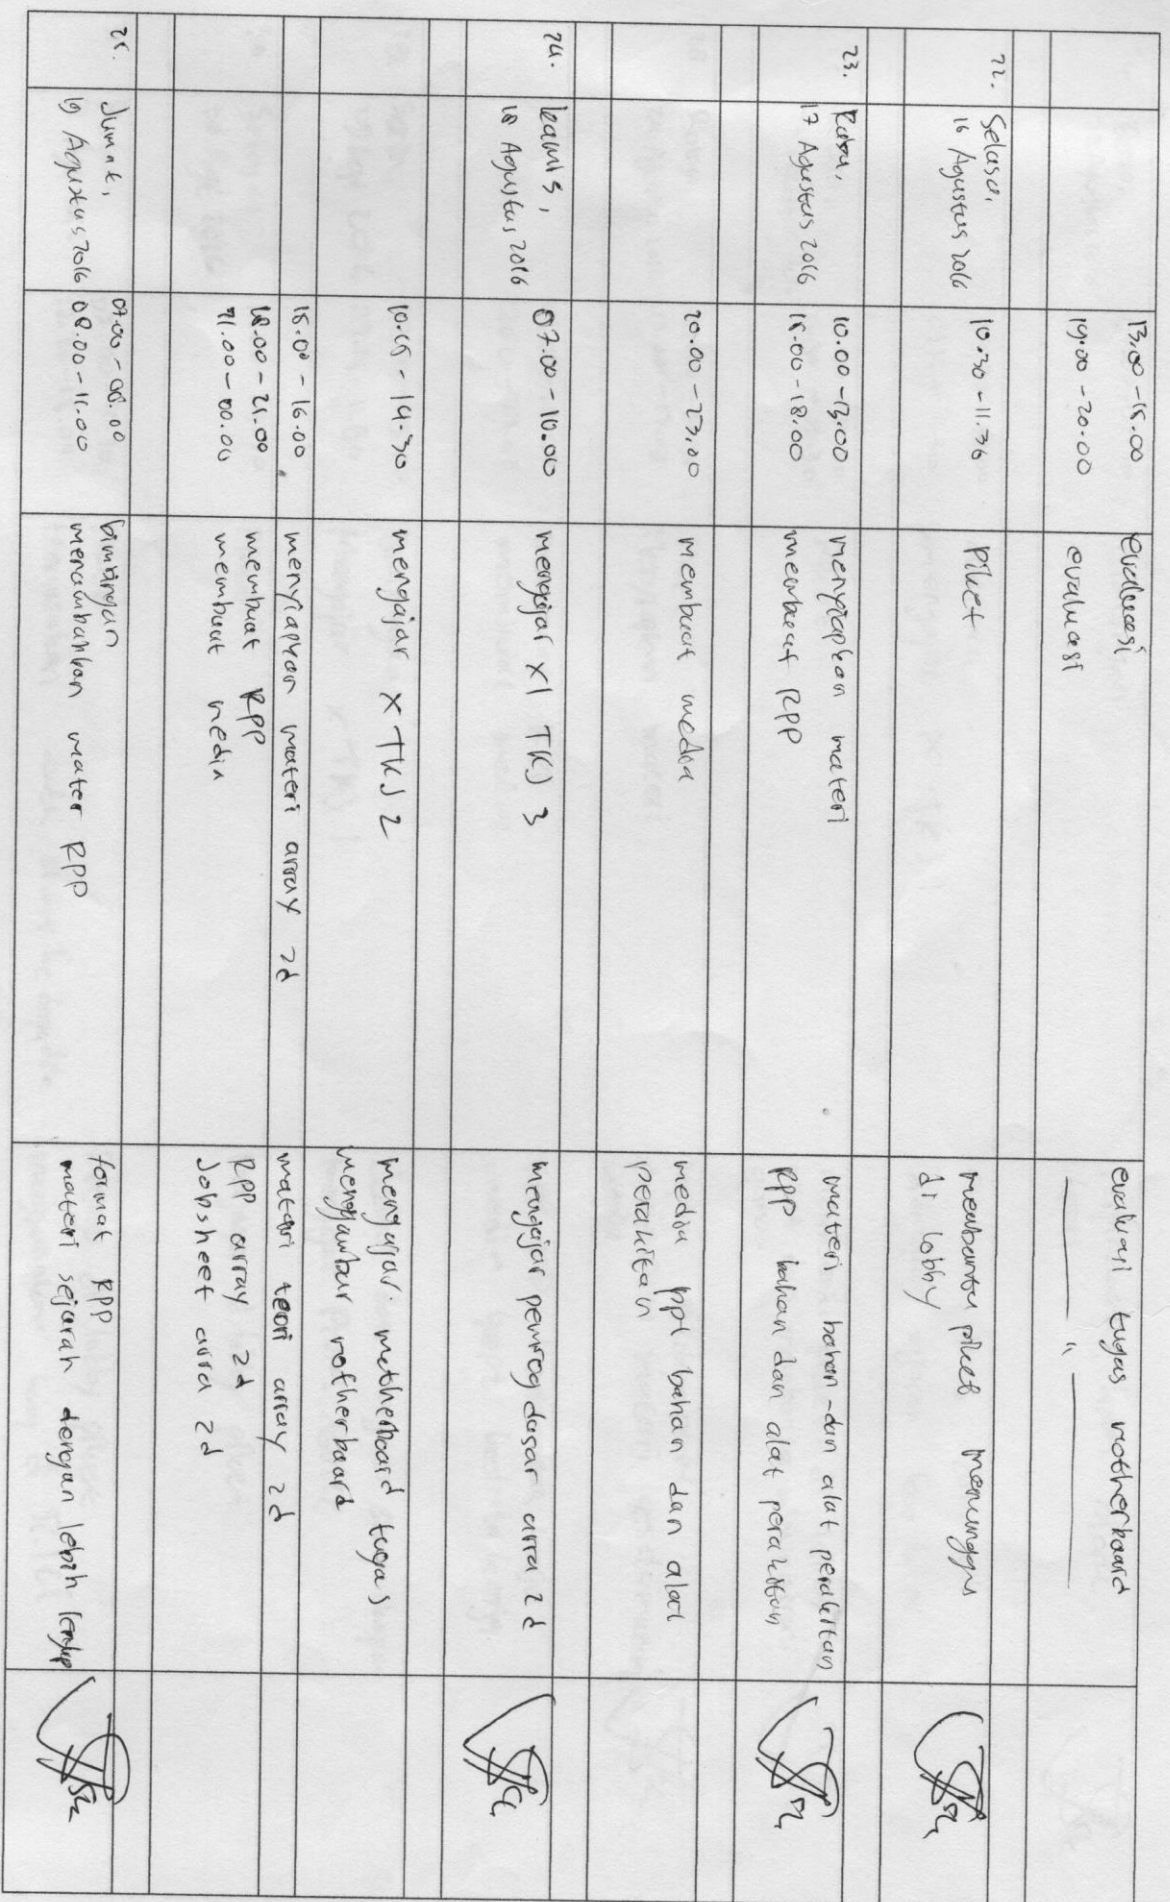 13.00 - 15.00 evaluasi evaluasi tugas motherboard
19.00 - 20.00 evaluasi —— " ——
22. Selasa, 10.30 - 11.30 Piket membantu piket menunggu
16 Agustus 2016 di lobby
23. Rabu, 10.00 - 13.00 menyiapkan materi materi bahan dan alat perakitan
17 Agustus 2016 15.00 - 18.00 membuat RPP RPP bahan dan alat perakitan
20.00 - 23.00 membuat media media ppt bahan dan alat
perakitan
24. kamis, 07.00 - 10.00 mengajar XI TKJ 3 mengajar pemrog dasar arra 2d
18 Agustus, 2016
10.15 - 14.30 mengajar X TKJ 2 mengajar motherboard tugas
menggambar motherboard
15.00 - 16.00 menyiapkan materi array 2d materi teori array 2d
18.00 - 21.00 membuat RPP RPP array 2d
21.00 - 00.00 membuat media Jobsheet arra 2d
25. Jumat, 07.00 - 08.00 bimbingan format RPP
19 Agustus 2016 08.00 - 11.00 menambahkan mater RPP materi sejarah dengan lebih lengkap